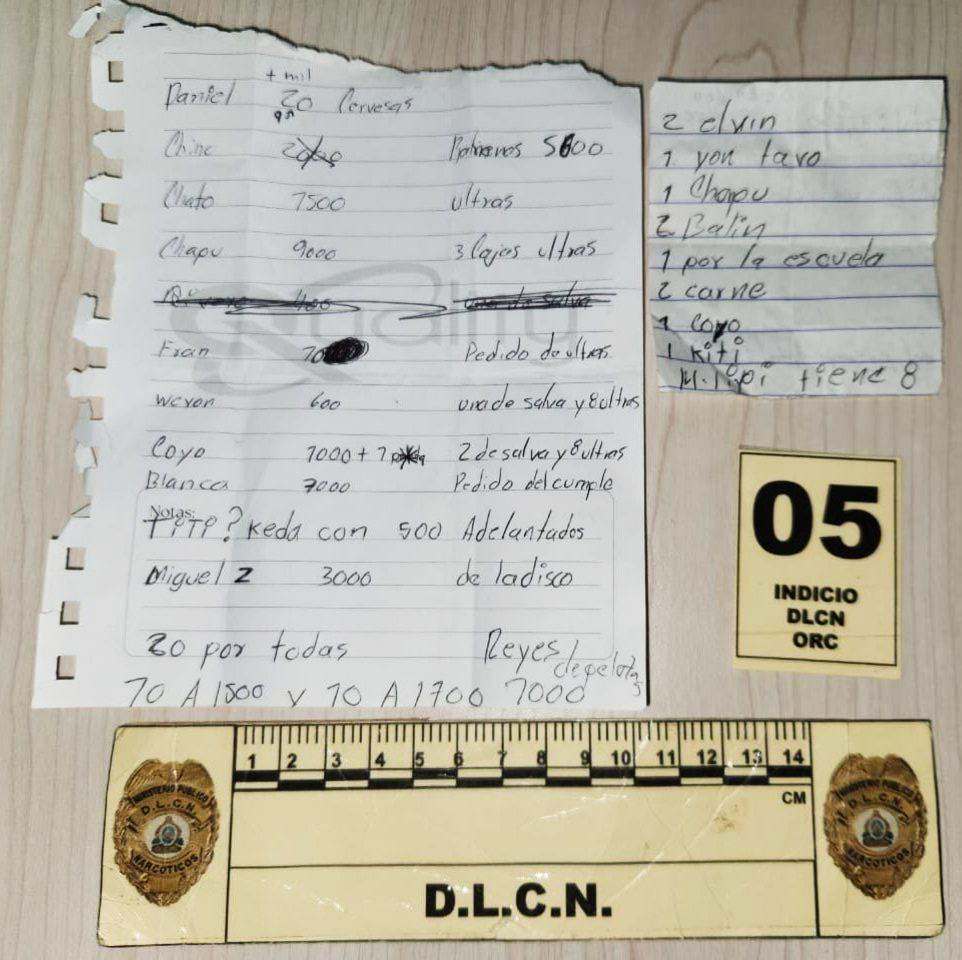 + mil
Daniel 20 Cervesas
Chine
Chato 7500 ultras
Chapu 9000 3 Cajas ultras
Quality
Fran Pedido de ultras
Weron 600 una de salva y 8 ultras
Coyo 7000 + 7 2 de salva y 8 ultras
Blanca 7000 Pedido del cumple
Notas:
TITI? Keda con 500 Adelantados
Miguel 2 3000 de la disco
20 por todas Reyes
de pelotas
70 A 1500 y 70 A 1700 7000
2 elvin
1 yon tavo
1 Chapu
2 Balin
1 por la escuela
2 carne
1 Coyo
1 Kiti
tiene 8
05
INDICIO
DLCN
ORC
1 2 3 4 5 6 7 8 9 10 11 12 13 14
CM
MINISTERIO PÚBLICO
D.L.C.N.
NARCOTICOS
D.L.C.N.
MINISTERIO PÚBLICO
D.L.C.N.
NARCOTICOS